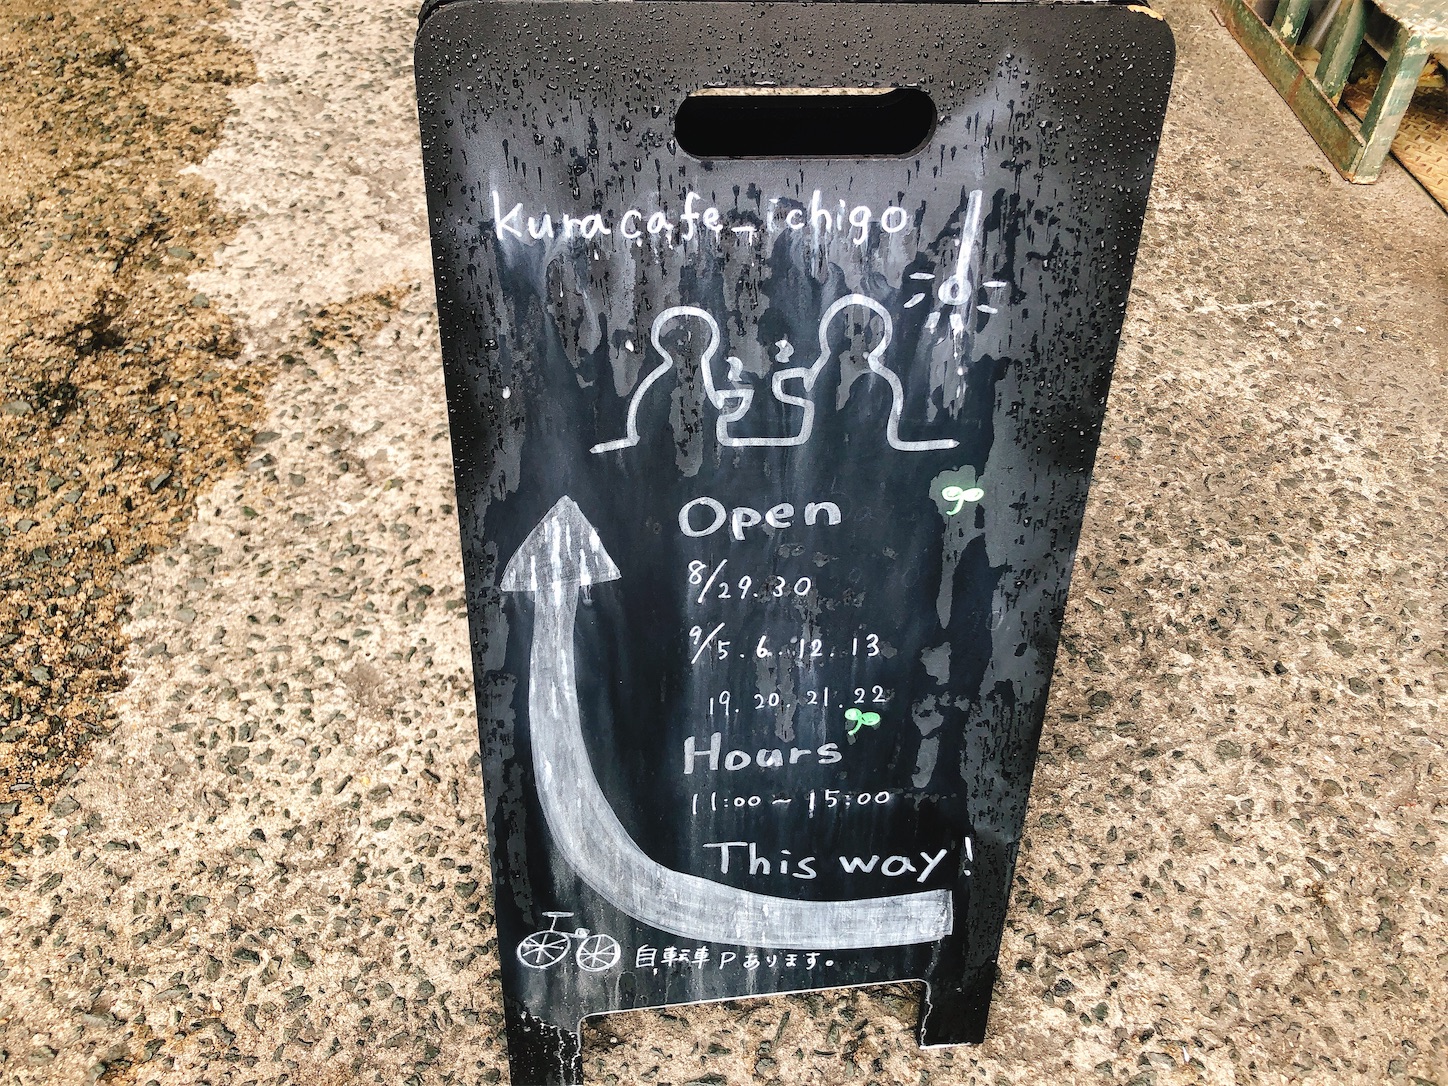 kura cafe_ichigo
Open
8/29.30
9/5.6.12.13
19.20.21.22
Hours
11:00~15:00
This way!
自転車Pあります。